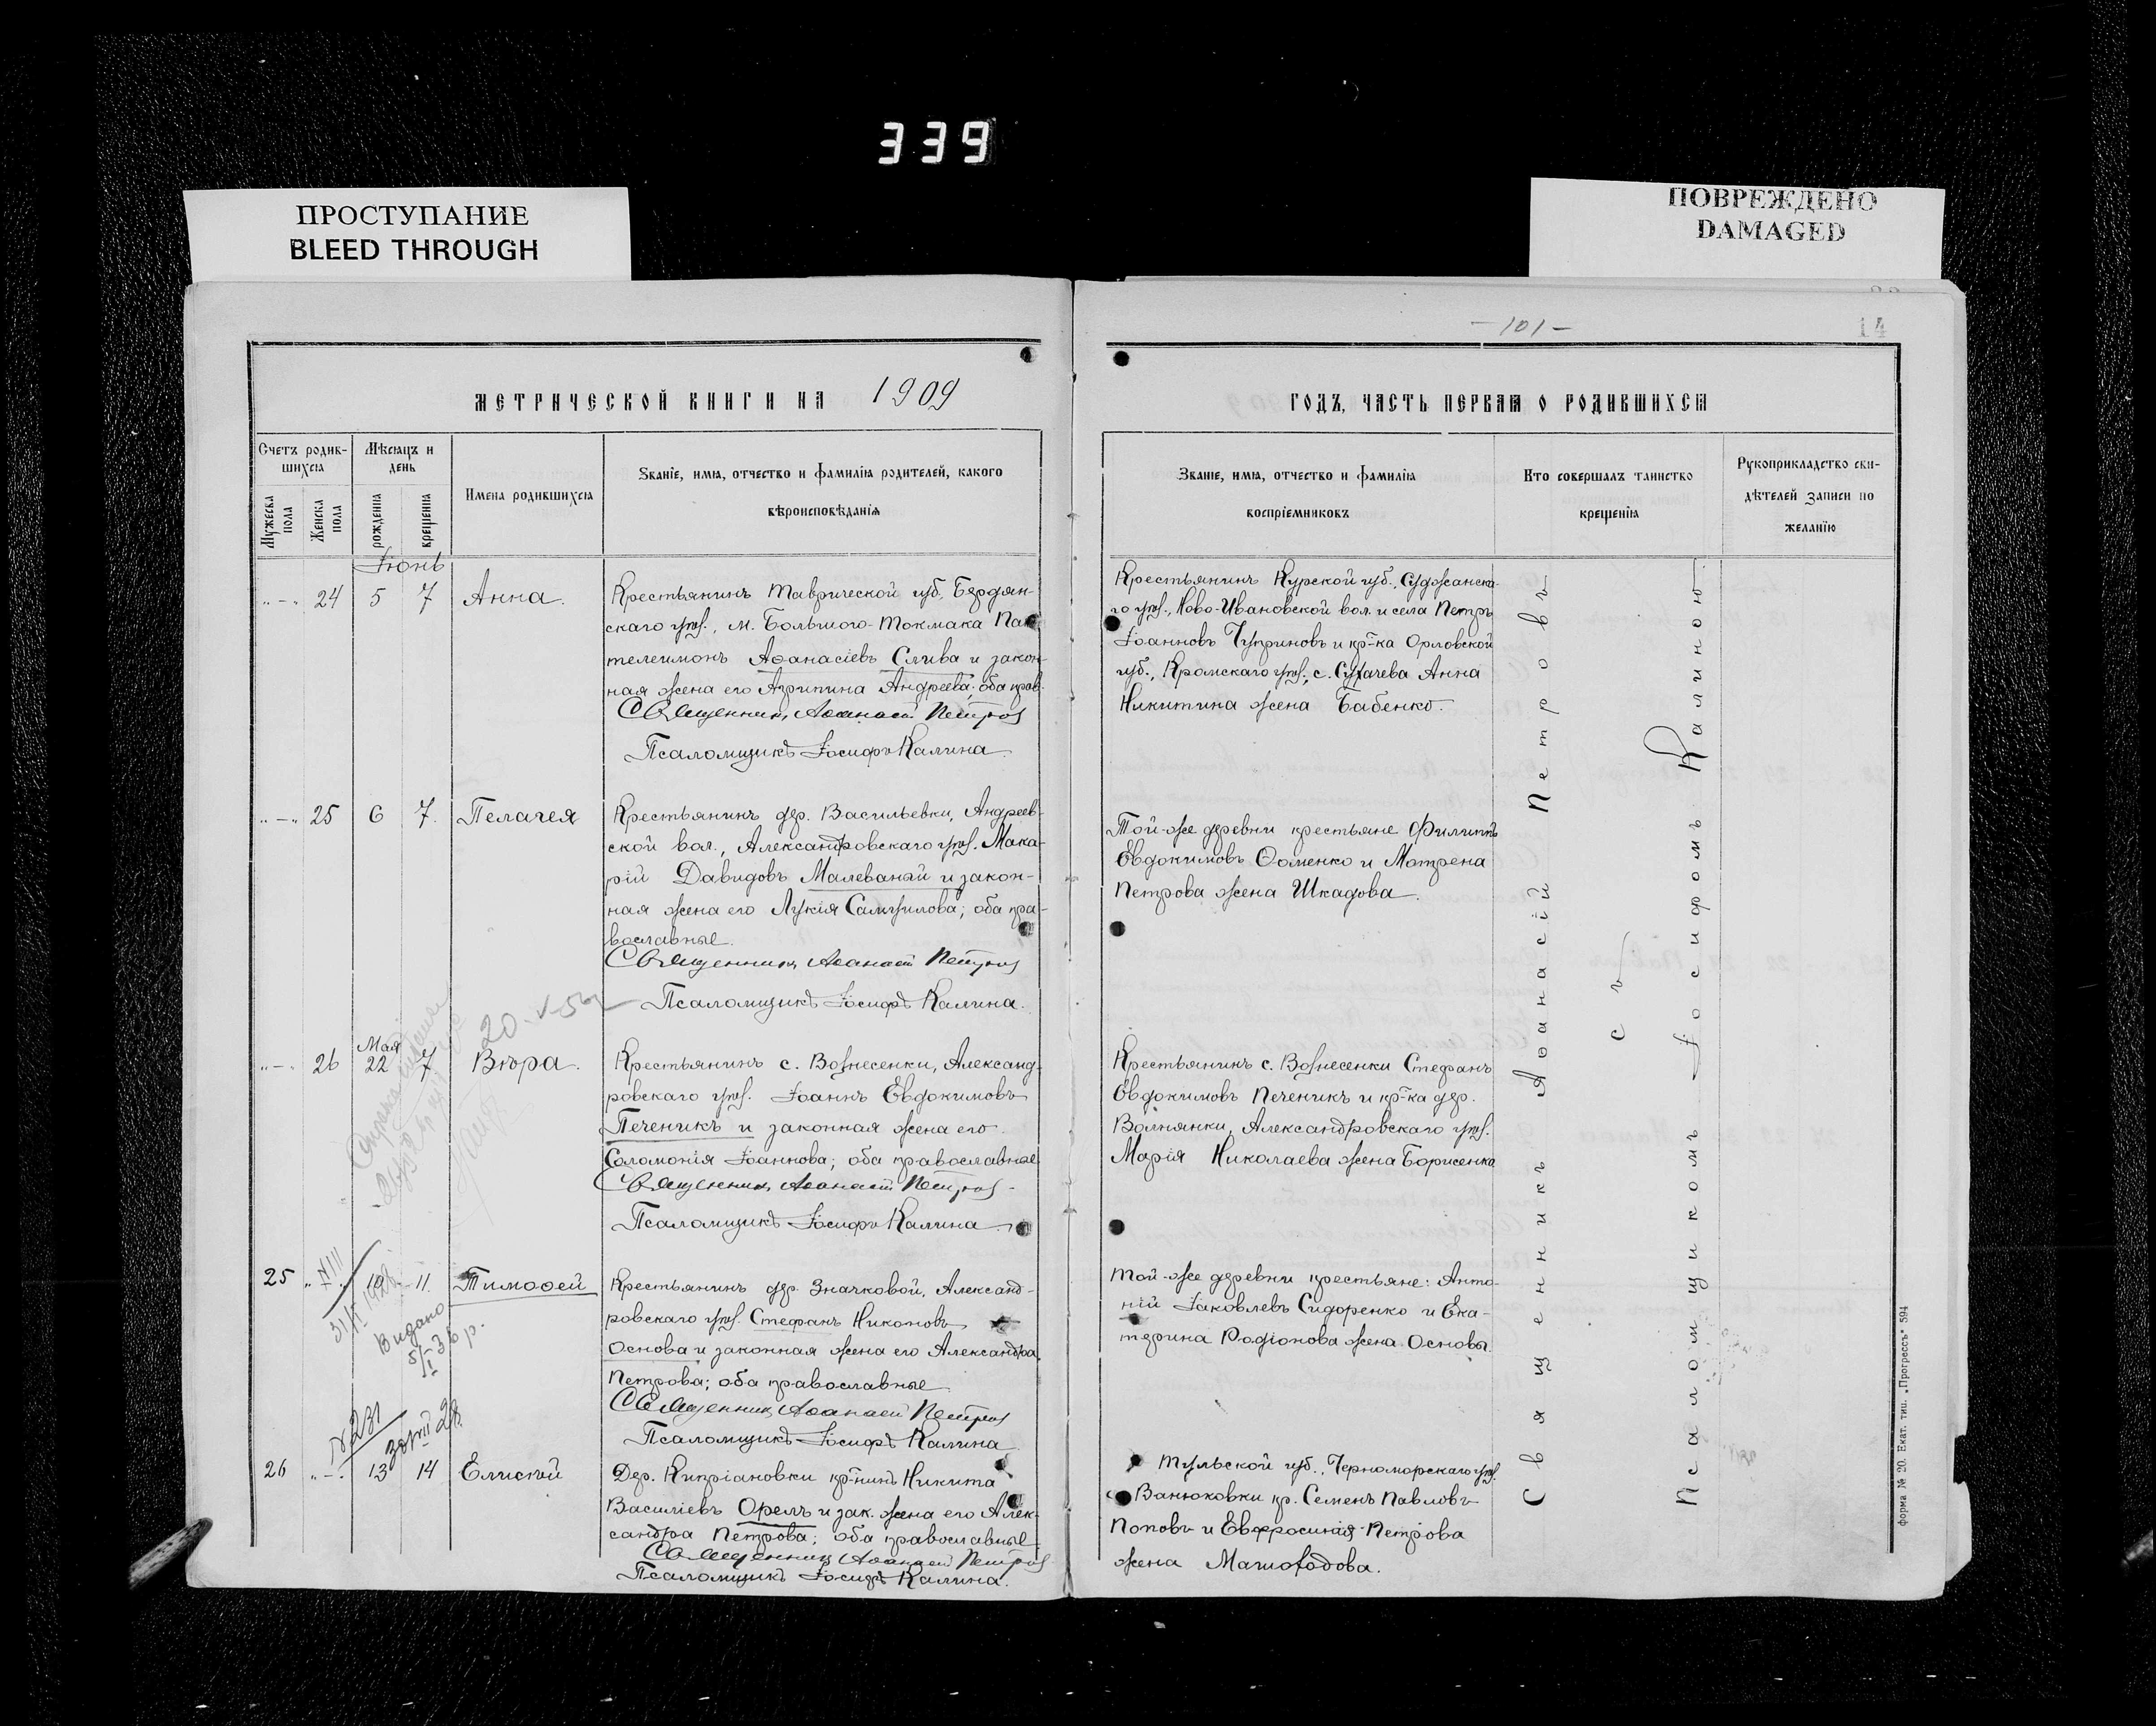 339
ПРОСТУПАНИЕ
BLEED THROUGH
ПОВРЕЖДЕНО
DAMAGED
— 101 —
14
МЕТРИЧЕСКОЙ КНИГИ НА 1909
ГОДЪ, ЧАСТЬ ПЕРВАЯ О РОДИВШИХСЯ
Счетъ родив-
шихся
Мужеска пола
Женска пола
Мѣсяцъ и
день
рожденія
крещенія
Имена родившихся
Званіе, имя, отчество и фамилія родителей, какого
вѣроисповѣданія
Званіе, имя, отчество и фамилія
воспріемниковъ
Кто совершалъ таинство
крещенія
Рукоприкладство сви-
дѣтелей записи по
желанію
Іюнь
„-„ 24 5 7 Анна.
Крестьянинъ Таврической губ., Бердян-
скаго уѣз., м. Большого-Токмака Пан
телеимонъ Аѳанасіевъ Слива и закон-
ная жена его Агрипина Андреева; оба прав.
Священникъ Аѳанасій Петровъ
Псаломщикъ Іосифъ Калина
Крестьянинъ Курской губ., Суджанска-
го уѣз., Ново-Ивановской вол. и села Петръ
Іоанновъ Чуприновъ и кр-ка Орловской
губ., Кромскаго уѣз., с. Сухачева Анна
Никитина жена Бабенко.
„-„ 25 6 7. Пелагея
Крестьянинъ дер. Васильевки, Андреев-
ской вол., Александровскаго уѣз. Мака-
рій Давидовъ Малеваный и закон-
ная жена его Лукія Самуилова; оба пра-
вославные.
Священникъ Аѳанасій Петровъ
Псаломщикъ Іосифъ Калина.
Той-же деревни крестьяне Филиппъ
Евдокимовъ Ѳоменко и Матрена
Петрова жена Шкадова.
20-V-54
Мая
„-„ 26 22 7 Вѣра.
Крестьянинъ с. Вознесенки, Александ-
ровскаго уѣз. Іоаннъ Евдокимовъ
Печеникъ и законная жена его
Соломонія Іоаннова; оба православные
Священникъ Аѳанасій Петровъ
Псаломщикъ Іосифъ Калина
Крестьянинъ с. Вознесенки Стефанъ
Евдокимовъ Печеникъ и кр-ка дер.
Волнянки, Александровскаго уѣз.
Марія Николаева жена Борисенко
25 11. Тимоѳей
Видано
5/I 36 р.
Крестьянинъ дер. Значковой, Александ-
ровскаго уѣз. Стефанъ Никоновъ
Основа и законная жена его Александра
Петрова; оба православные
Священникъ Аѳанасій Петровъ
Псаломщикъ Іосифъ Калина
Той-же деревни крестьяне: Анто-
ній Іаковлевъ Сидоренко и Ека-
терина Родіонова жена Основы.
N 231
26 „-„ 13 14 Елисей
Дер. Кипріановки кр-нинъ Никита
Василіевъ Орелъ и зак. жена его Алек-
сандра Петрова; оба православные
Священникъ Аѳанасій Петровъ
Псаломщикъ Іосифъ Калина.
Тульской губ., Черноморскаго уѣз.
Ванюковки кр. Семенъ Павловъ
Поповъ и Евфросинія Петрова
жена
Священникъ Аѳанасій Петровъ
съ
Псаломщикомъ Іосифомъ Калиною
форма № 20. Екат. тип. „Прогрессъ" 594